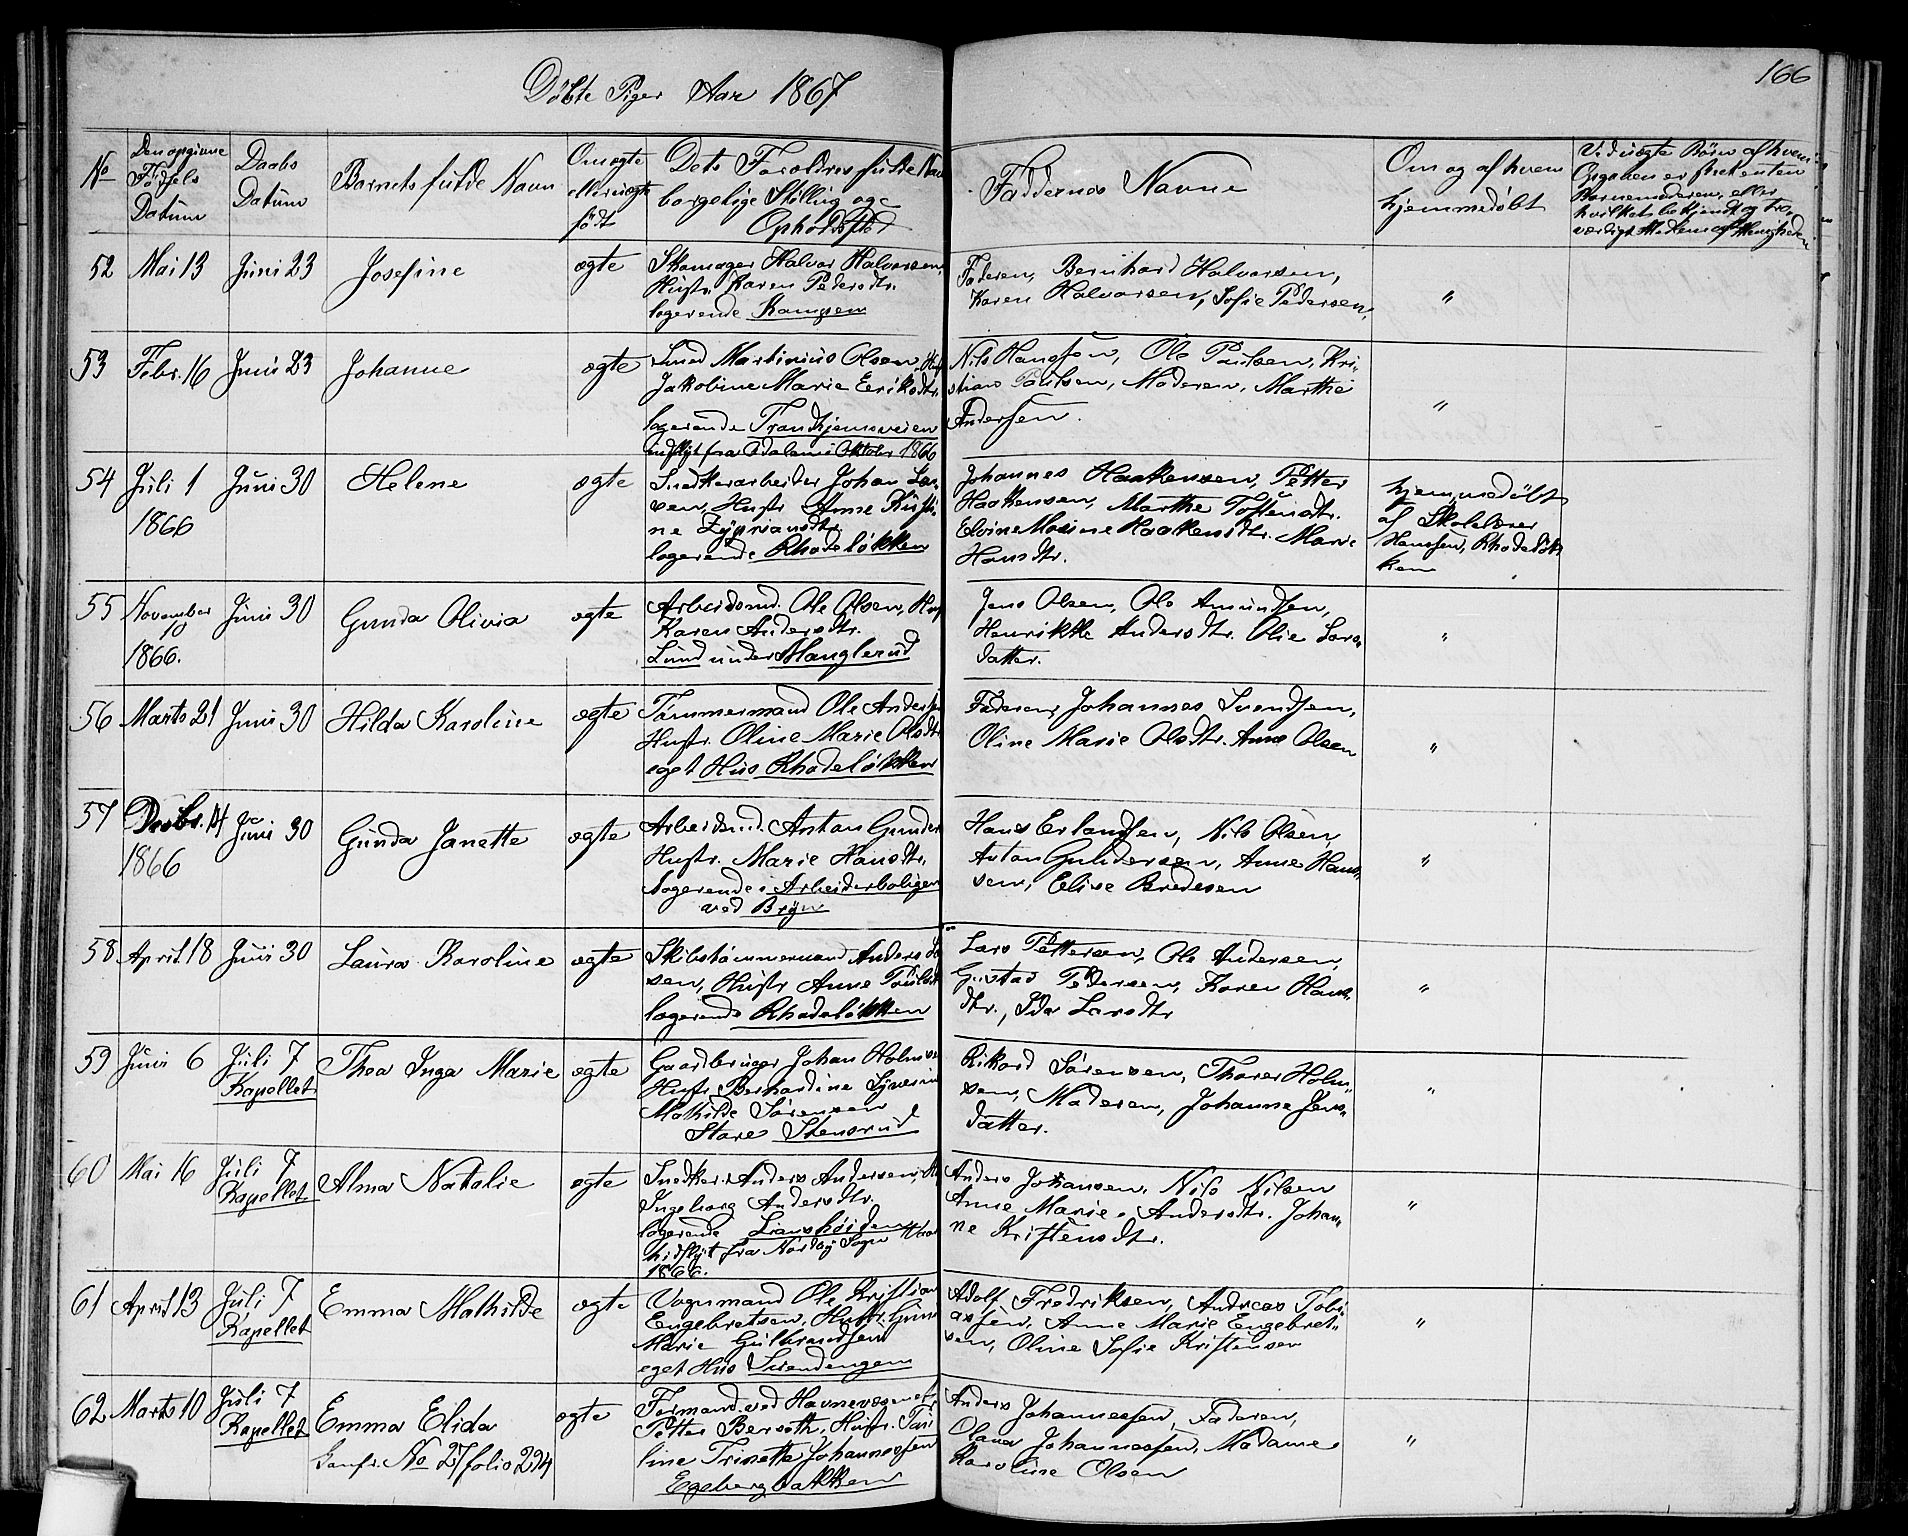 166
Døbte Piger Aar 1867
No
Den opgivne
Fødsels
Datum
Daabs
Datum
Barnets fulde Navn
Om ægte
eller uægte
født
Dets Forældres fulde Navn
borgelige Stilling og
Opholdssted
Faddernes Navne
Om og af hvem
hjemmedøbt
Ved uægte Børn af hvem
Opgaven er
Barnemoderen, eller
hvilket bekjendt og tro-
værdigt Medlem af Menigheden
52 Mai 13 Juni 23 Josefine ægte
Skomager Halvor Halvorsen,
Hustr. Karen Pedersdtr.
logerende Kampen
Faderen, Bernhard Halvorsen,
Karen Halvorsen, Sofie Pedersen,
"
53 Febr. 16 Juni 23 Johanne ægte
Smed Martinius Olsen, Hus
Jakobine Marie Eeriksdtr.
logerende Trondhjemsveien
indflyt fra Odalen i Oktober 1866
Nils Hansen, Ole Paulsen, Kri-
stian Paulsen, Moderen, Marthe
Andersen.
"
54 Juli 1 Juni 30 Helene ægte
1866
Snedkerarbeider Johan Lar-
sen, Hustr Anne Kristi-
ne Zypriansdtr.
logerende Rhodeløkken
Johannes Haakensen, Petter
Haakensen, Marthe Tostensdtr.
Elvine Mosine Haakensdtr. Marie
Hansdtr.
hjemmedøbt
af Skolelærer
Hanssen, Rhodeløk
ken
55 November Juni 30 Gunda Olivia ægte
10
1866.
Arbeidsmd. Ole Olsen, Hus
Karen Andersdtr.
Lund under Manglerud
Jens Olsen, Ole Amundsen,
Henrikke Andersdtr. Olie Lars-
datter.
"
56 Marts 21 Juni 30 Hilda Karoline ægte
Tømmermand Ole Andersen
Hustr. Oline Marie Olsdtr
eget Hus Rhodeløkken
Faderen, Johannes Svendsen,
Oline Marie Olsdtr. Anne Olsen
"
57 Decbr. 14 Juni 30 Gunda Janette ægte
1866
Arbeidsmd. Anton Gunder
Hustr. Marie Hansdtr.
logerende i Arbeiderboligen
ved Bryn
Hans Erlandsen, Nils Olsen,
Anton Gundersen, Anne Han-
sen, Elise Bredesen
"
58 April 18 Juni 30 Laura Karoline ægte
Skibstømmermand Anders La
sen, Hustr Anne Paulsdt
logerende Rhodeløkken
Lars Pettersen, Ole Andersen,
Gustav Pedersen, Karen Hans-
dtr., Ida Larsdtr
"
59 Juni 6 Juli 7 Thea Inga Marie ægte
Kapellet
Gaardbruger Johan Holmse
Hustr. Bernhardine Syverine
Mathilde Sørensen
Store Stensrud
Rikard Sørensen, Thorer Holm-
sen, Moderen, Johanne Jens-
datter.
"
60 Mai 16 Juli 7 Alma Natalie ægte
Kapellet
Snedker Anders Andersen, H
Ingeborg Andersdtr.
logerende
hidflyt fra Nordby Sogn
1866.
Anders Johansen, Nils Nilsen
Anne Marie Andersdtr. Johan-
ne Kristensdtr.
"
61 April 13 Juli 7 Emma Mathilde ægte
Kapellet
Vognmand Ole Kristian
Engebretsen, Hustr. Gun
Marie Gulbrandsen
eget Hus Svendengen
Adolf Fredriksen, Andreas Tobi-
assen, Anne Marie Engebret-
sen, Oline Sofie Kristensen
"
62 Marts 10 Juli 7 Emma Elida ægte
Kapellet
Jemfr. No 27 folio 294
Formand ved Havnevæsenet
Petter Berseth, Hustr.
line Trinette Johannessen
Egebergbakken
Anders Johannessen, Faderen,
Olava Johannessen, Madame
Karoline Olsen
"